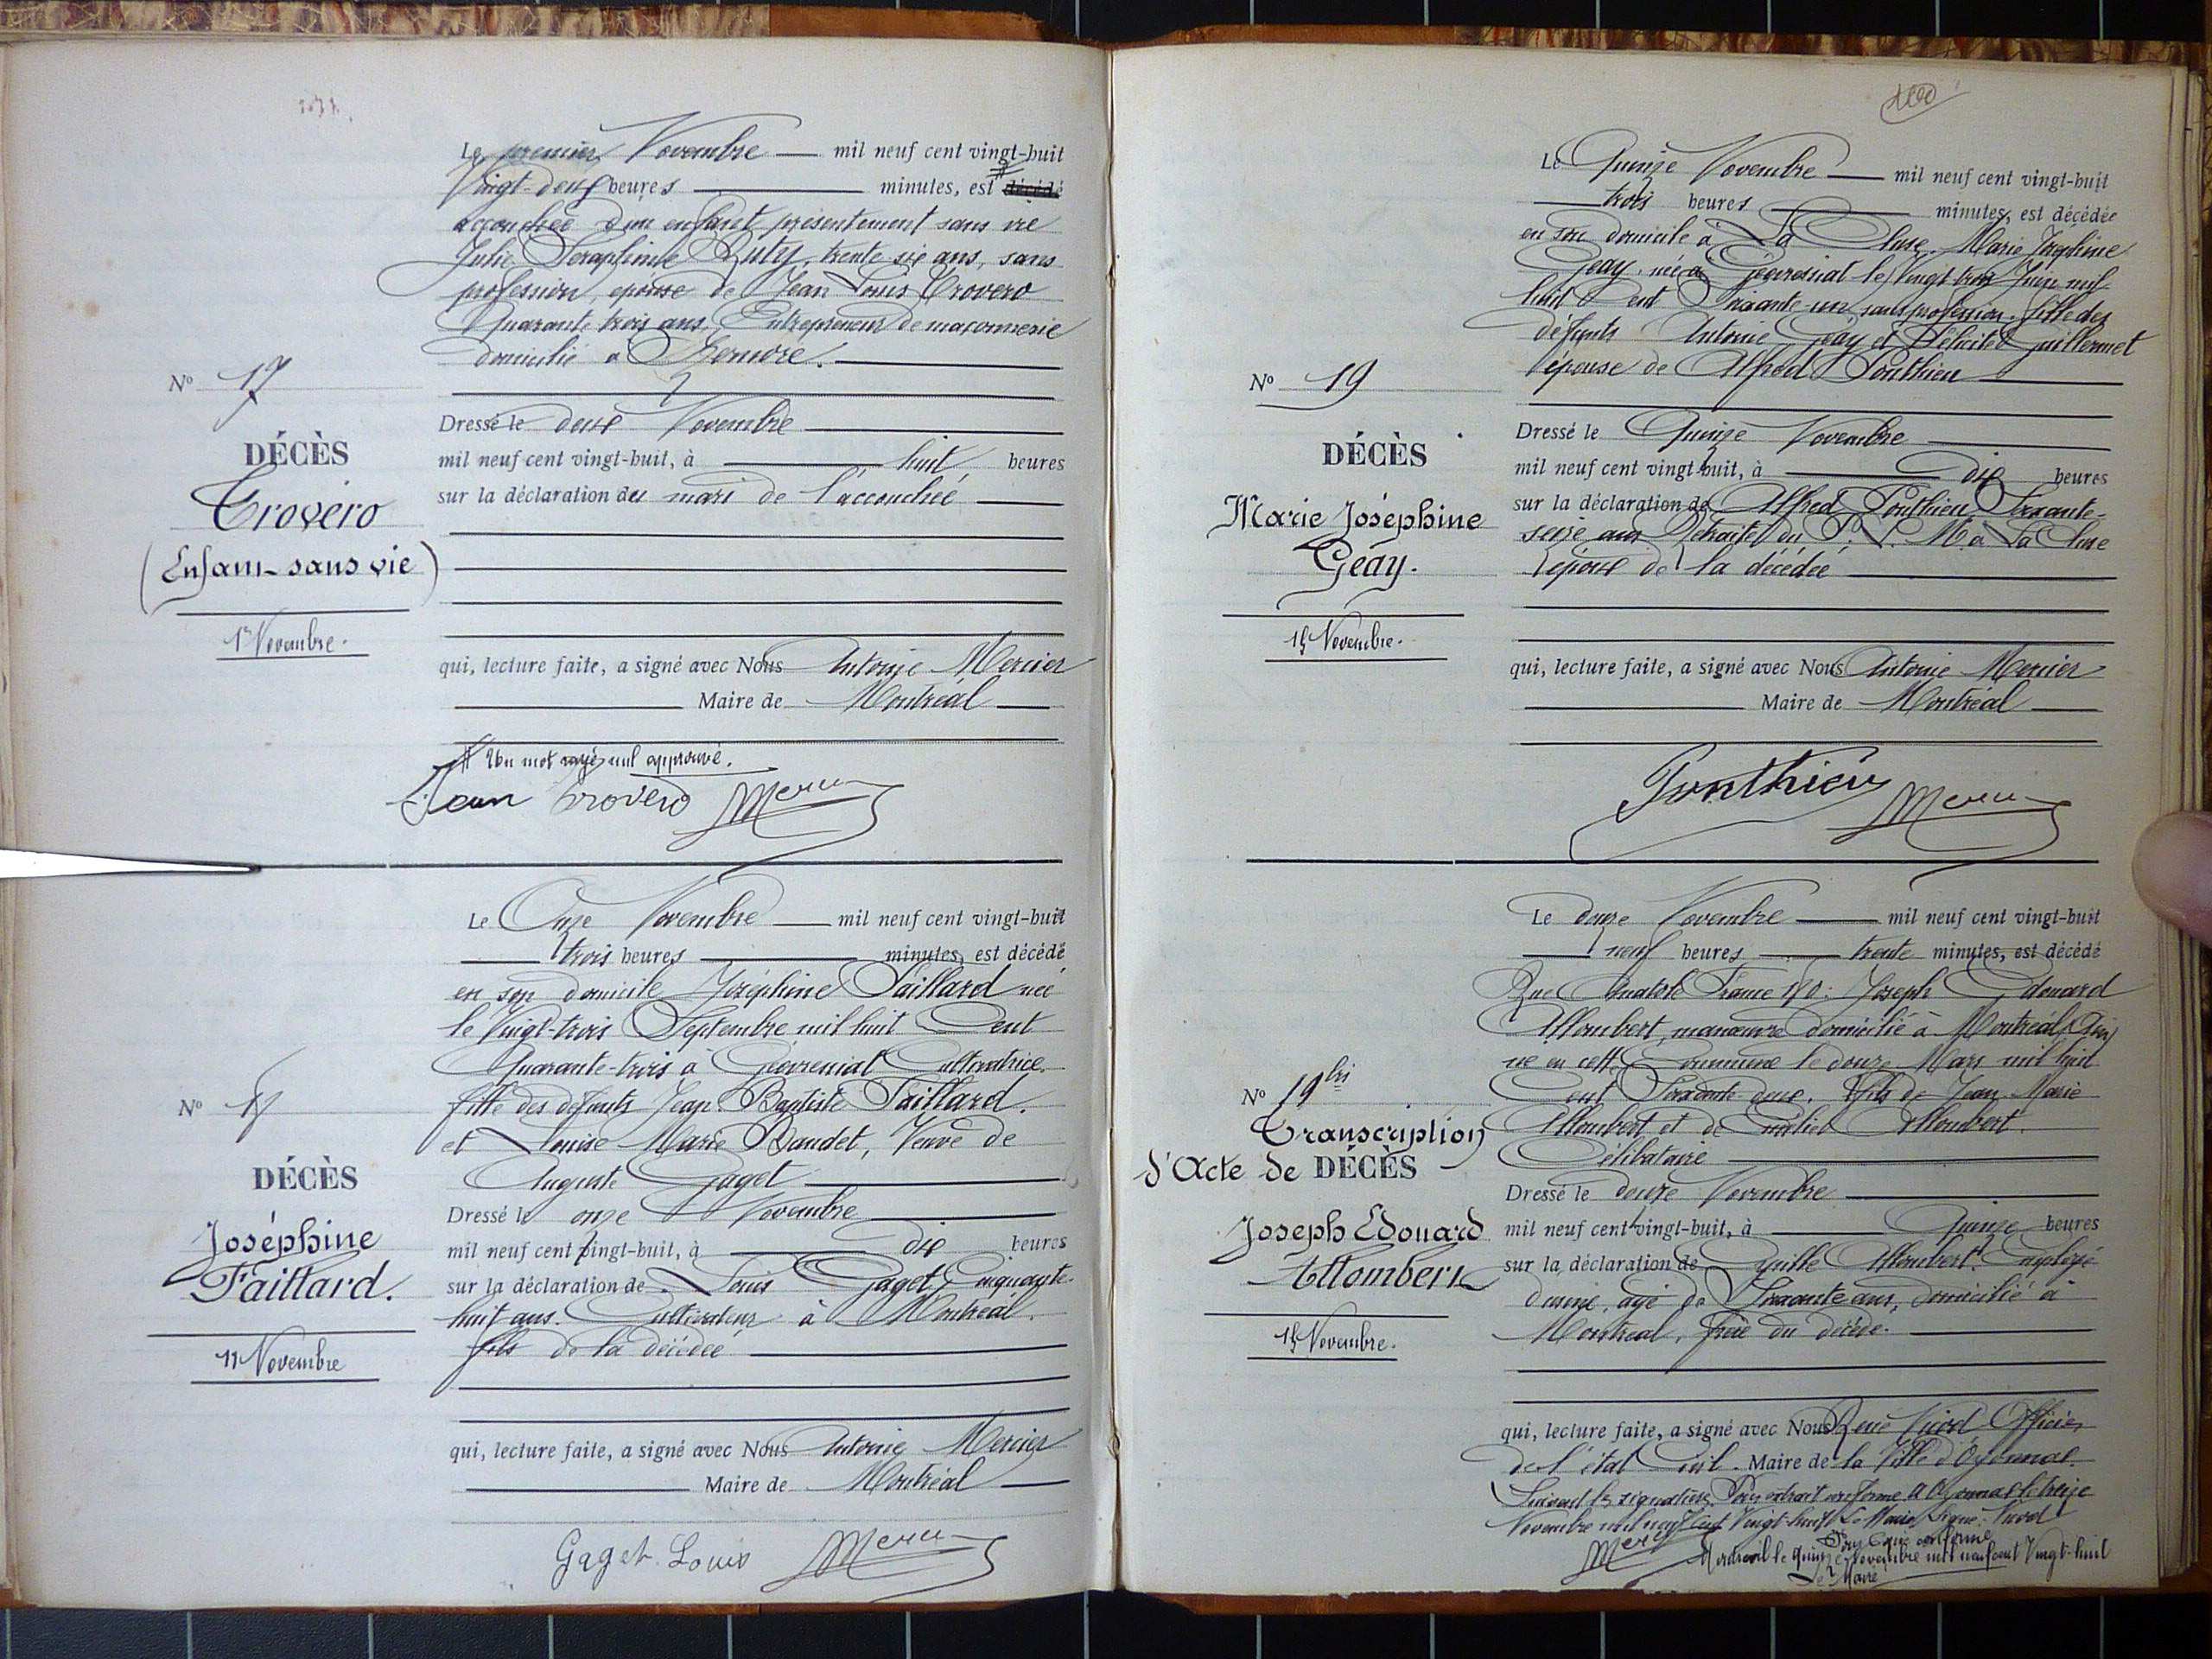 Le premier Novembre mil neuf cent vingt-huit
Vingt-deux heures minutes, est décédé
accouchée d'un enfant présentement sans vie
Julie Séraphinie trente six ans, sans
profession, épouse de Jean Louis Trovero
Quarante trois ans, Entrepreneur de maçonnerie
domicilié à
N° 17
DÉCÈS
Trovero
(Enfant sans vie)
1er Novembre.
Dressé le deux Novembre
mil neuf cent vingt-huit, à huit heures
sur la déclaration du mari de l'accouchée
qui, lecture faite, a signé avec Nous Antonie Mercier
Maire de Montréal
Un mot rayé nul approuvé.
Jean Trovero Mercier
Le Onze Novembre mil neuf cent vingt-huit
trois heures minutes, est décédé
en son domicile Joséphine Paillard née
le Vingt-trois Septembre mil huit Cent
Quarante-trois à Géovreissiat Cultivatrice.
fille des défunts Jean Baptiste Paillard.
et Louise Marie Baudet, Veuve de
Auguste Gaget
N°
DÉCÈS
Joséphine
Paillard.
11 Novembre
Dressé le onze Novembre
mil neuf cent vingt-huit, à dix heures
sur la déclaration de Louis Gaget, Cinquante-
huit ans. Cultivateur à Montréal.
fils de la décédée
qui, lecture faite, a signé avec Nous Antonie Mercier
Maire de Montréal
Gaget Louis Mercier
100
Le Quinze Novembre mil neuf cent vingt-huit
trois heures minutes, est décédée
en son domicile à La Cluse, Marie Joséphine
Géay, née à le Vingt trois Juin mil
huit Cent Soixante-un, sans profession. fille des
défunts Antonie Géay et Félicité Guillermet
épouse de Alfred Ponthieu
N° 19
DÉCÈS
Marie Joséphine
Géay.
15 Novembre.
Dressé le Quinze Novembre
mil neuf cent vingt-huit, à dix heures
sur la déclaration de Alfred Ponthieu, Soixante-
seize ans Retraité du P. L. M. à La Cluse
époux de la décédée
qui, lecture faite, a signé avec Nous Antonie Mercier
Maire de Montréal
Ponthieu Mercier
Le douze Novembre mil neuf cent vingt-huit
neuf heures trente minutes, est décédé
Rue Anatole France Joseph Edouard
Allombert, manœuvre domicilié à Montréal (Ain)
né en cette Commune le douze Mars mil huit
Cent Soixante-deux. fils de Jean Marie
Allombert et de Allombert.
Célibataire
N° 19 bis
Transcription
d'Acte de DÉCÈS
Joseph Edouard
Allombert
15 Novembre.
Dressé le douze Novembre
mil neuf cent vingt-huit, à Quinze heures
sur la déclaration de Allombert. Employé
d'usine, âgé de Soixante ans, domicilié à
Montréal, frère du décédé.
qui, lecture faite, a signé avec Nous René Nicod Officier
de l'état Civil. Maire de la Ville d'Oyonnax.
Suivent les signatures. Pour extrait conforme. A Oyonnax le treize
Novembre mil neuf cent Vingt-huit. Le Maire Signé: Nicod
Pour Copie conforme
Mercier Montréal le Quinze Novembre mil neuf cent Vingt-huit
Le Maire